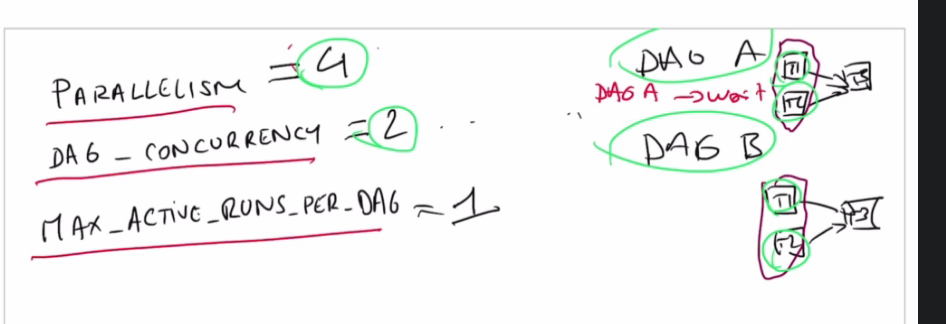 PARALLELISM = 4
DAG_CONCURRENCY = 2
MAX_ACTIVE_RUNS_PER_DAG = 1
DAG A
T1
T2
T3
DAG A → wait
DAG B
T1
T2
T3